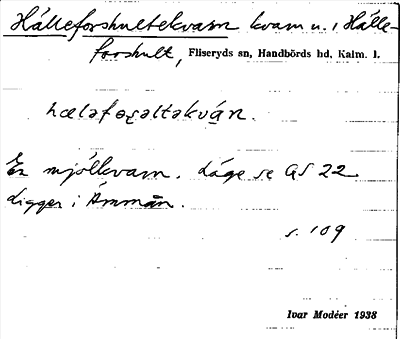 Hälleforshultekvarn kvarn n. i Hälle-
forshult, Fliseryds sn, Handbörds hd, Kalm. l.
En mjölkvarn. Läge se GS 22
ligger i Ämmån.
s. 109
Ivar Modéer 1938